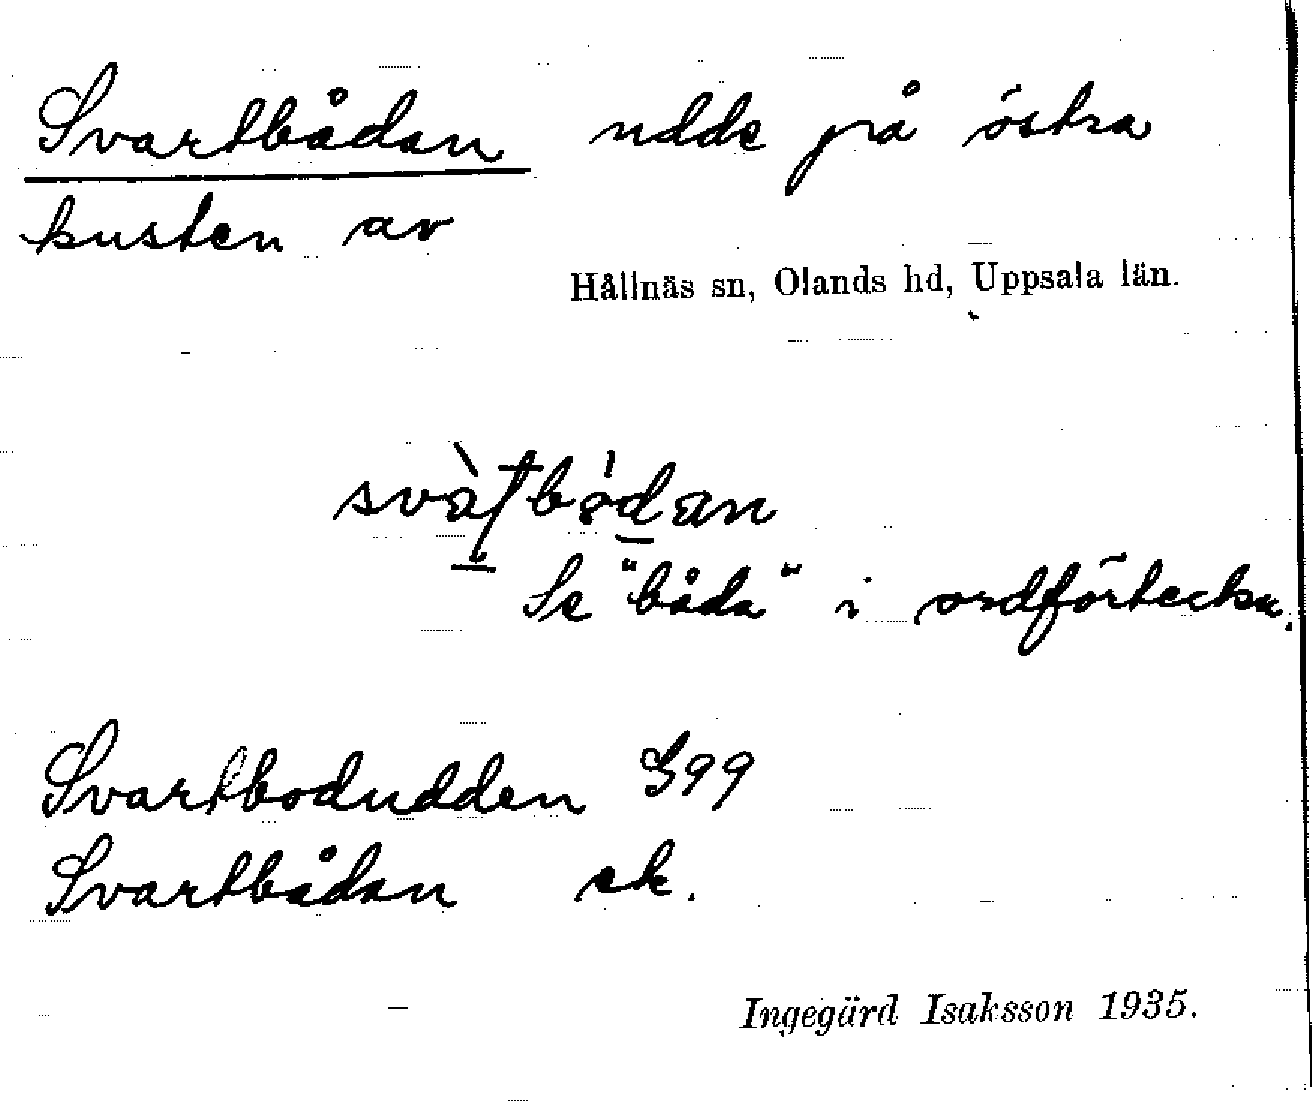 Svartbådan udde på östra
kusten av
Hållnäs sn, Olands hd, Uppsala län.
Se "båda" i ordförteckn.
Svartbodudden G99
Svartbådan ek.
Ingegärd Isaksson 1935.